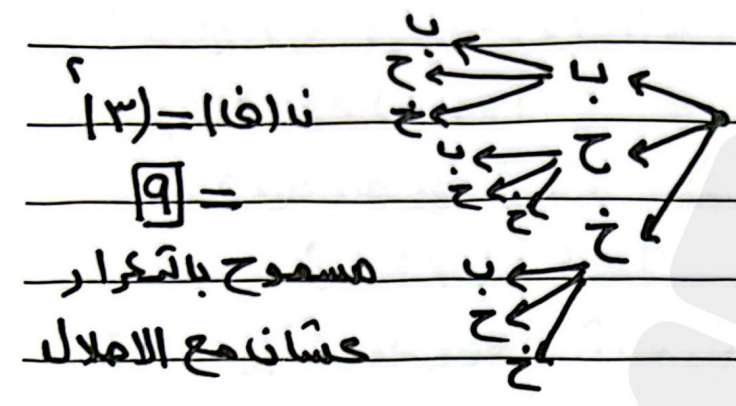 ب
ب
ح
خ
ح
ب
ح
خ
خ
ب
ح
خ
ن(ف) = (٣)^٢
= ٩
مسموح بالتكرار
عشان مع الاحلال